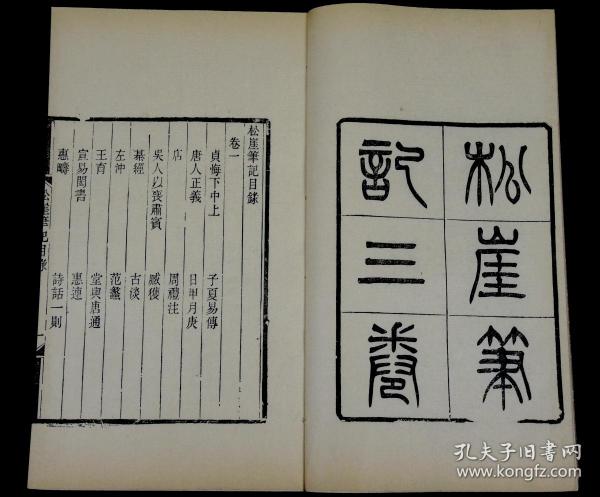 松崖筆
記三卷
松崖筆記目錄
卷一
貞悔下中上 子夏易傳
唐人正義 日甲月庚
店 周禮注
吳人以喪肅賓 臧獲
棊經 古淡
左沖 范蠡
王育 堂與唐通
宣易 書 惠連
惠疇 詩話一則
松崖筆記目錄
孔夫子旧书网
www.kongfz.com